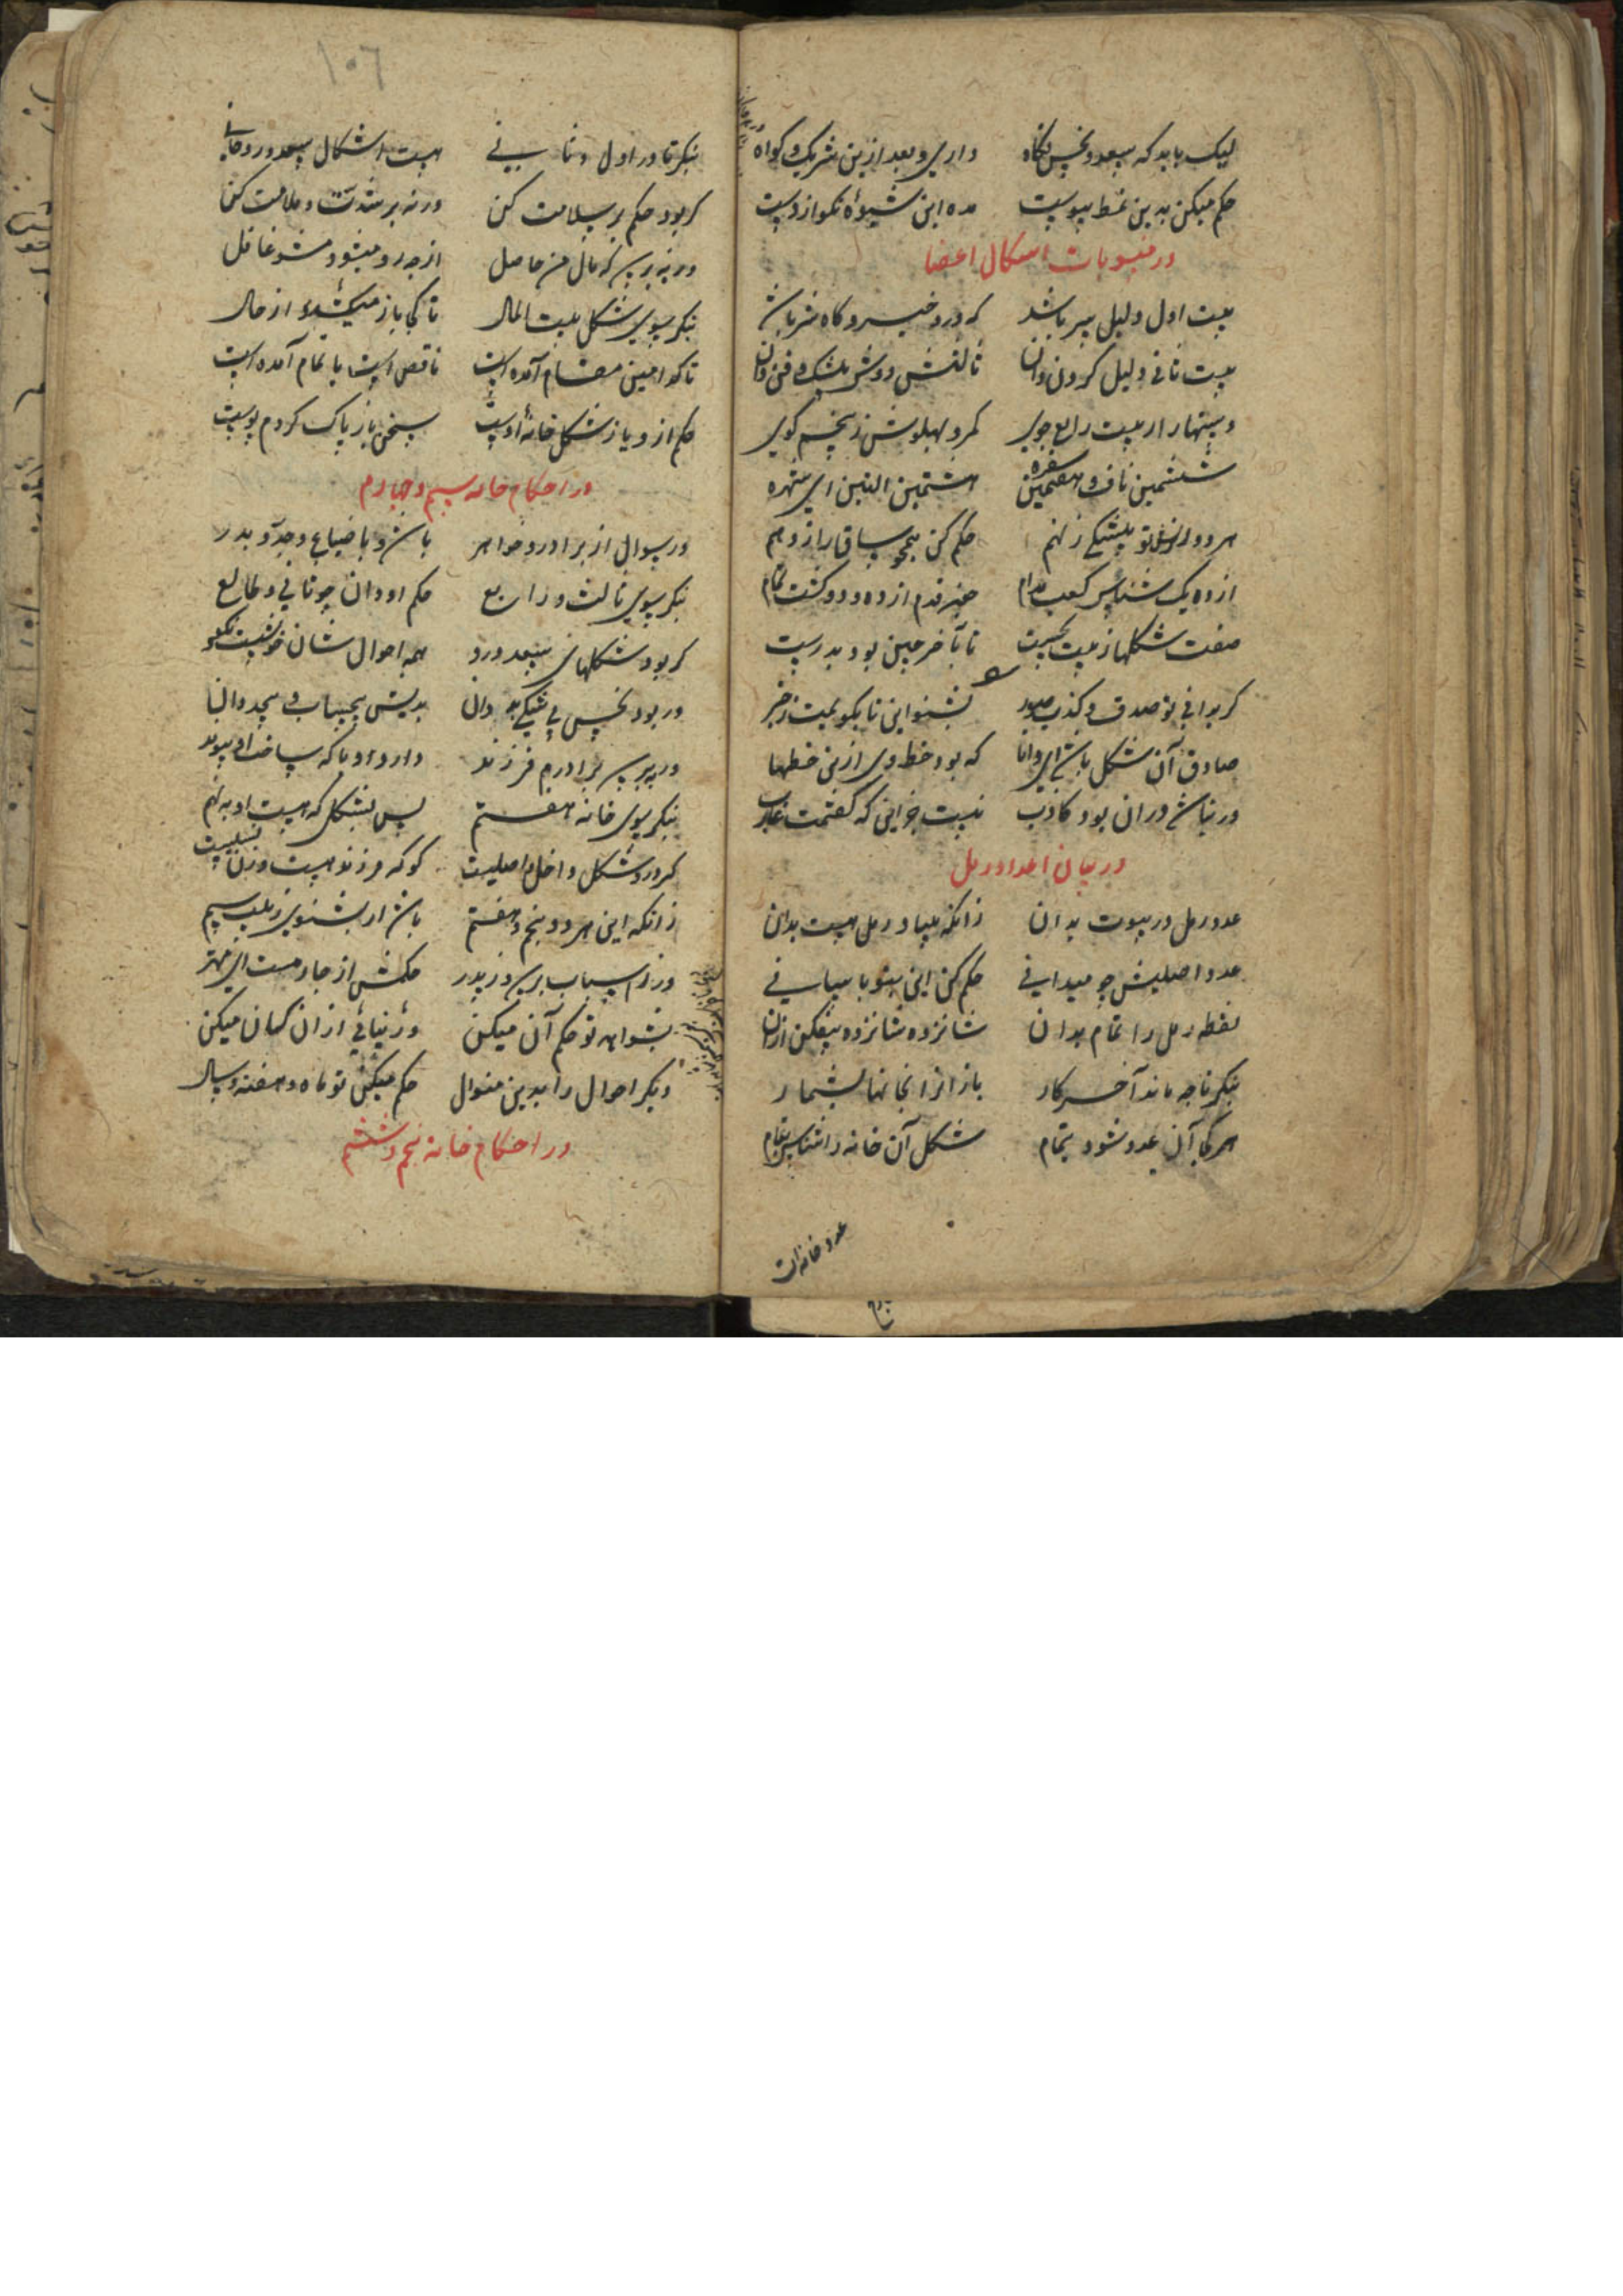 لیک باید که سعد و نحس نگاه داری و بعد ازین شریک و گواه
حکم میکن بدین نمط پیوست مده این شیوهٔ نکو از دست
در منسوبات اشکال اعضا
بیت اول دلیل سر باشد که درو خیر و گاه شر باشد
بیت ثانی دلیل گردن دان ثالثش دوش بیشک و فن دان
دستها را ز بیت رابع جوی کمر و پهلویش ز پنجم گوی
ششمین ناف و هفتمین سفره هشتمین الیتین ای شهره
هر دو تو بیشکی ز نهم حکم کن همچو ساق را ز دهم
از ده یک شناس کعب مدام خیر قدم از ده و دو گشت تمام
صفت شکلها ز بیت نخست تا بآخر چنین بود بدرست
گر بدانی تو صدق و کذب بشنو این تا بگویمت ز خبر
صادق آن شکل باشد ای دانا که بود حظ وی ازین حظها
ور نباشد در آن بود کاذب نیست جز این که گفتمت غایب
در بیان اعداد رمل
عدد رمل در بیوت بدان زانکه بنیاد رمل هست بدان
عدد اصلیش چو میدانی حکم کن این بنو بآسانی
نقطه رمل را تمام بدان شانزده شانزده بیفکن ازان
بنگر تا چه ماند آخر کار باز آنرا بخانها بشمار
هر کجا آن عدد شود تمام شکل آن خانه را شناس بنام
عدد خانه آن
۱۰۶
بنگر تا در اول و ثانی هست اشکال سعد و روحانی
گر بود حکم بر سلامت کن ورنه بر شدت و ملامت کن
ور بپرسد که مال من حاصل از چه رو میشود مشو غافل
بنگر سوی شکل بیت المال تا کجا باز میکشد از حال
تا کدامین مقام آمده است ناقص است یا تمام آمده است
حکم ازو یا ز شکل خانهٔ اوست سخن باز پاک کردم پوست
در احکام خانه سیم و چهارم
ور سوال از برادر و خواهر باشد و یا ضیاع و جد و پدر
بنگر سوی ثالث و رابع حکم او دان چو ثانی و طالع
گر بود شکلهای سعد درو همه احوال شان خوشست نکو
ور بود نحس بی شکی بد دان
ور بپرسد برادرم فرزند دارد او یا که ساخت او پیوند
بنگر سوی خانه هفتم پس بشکلی که هست او به نهم
گر درو شکل داخل اصلیست گو که فرزند هست و زن نسلیست
زانکه این هر دو پنجم و هفتم باشد ار بشنوی ز بیت سیم
ور ز اسباب پرسد و ز پدر حکمش از چارمست ای مهتر
بشواهد تو حکم آن میکن ور نیابی از آن گمان میکن
دیگر احوال را بدین منوال حکم میکن تو ماه و هفته و سال
در احکام خانه پنجم و ششم